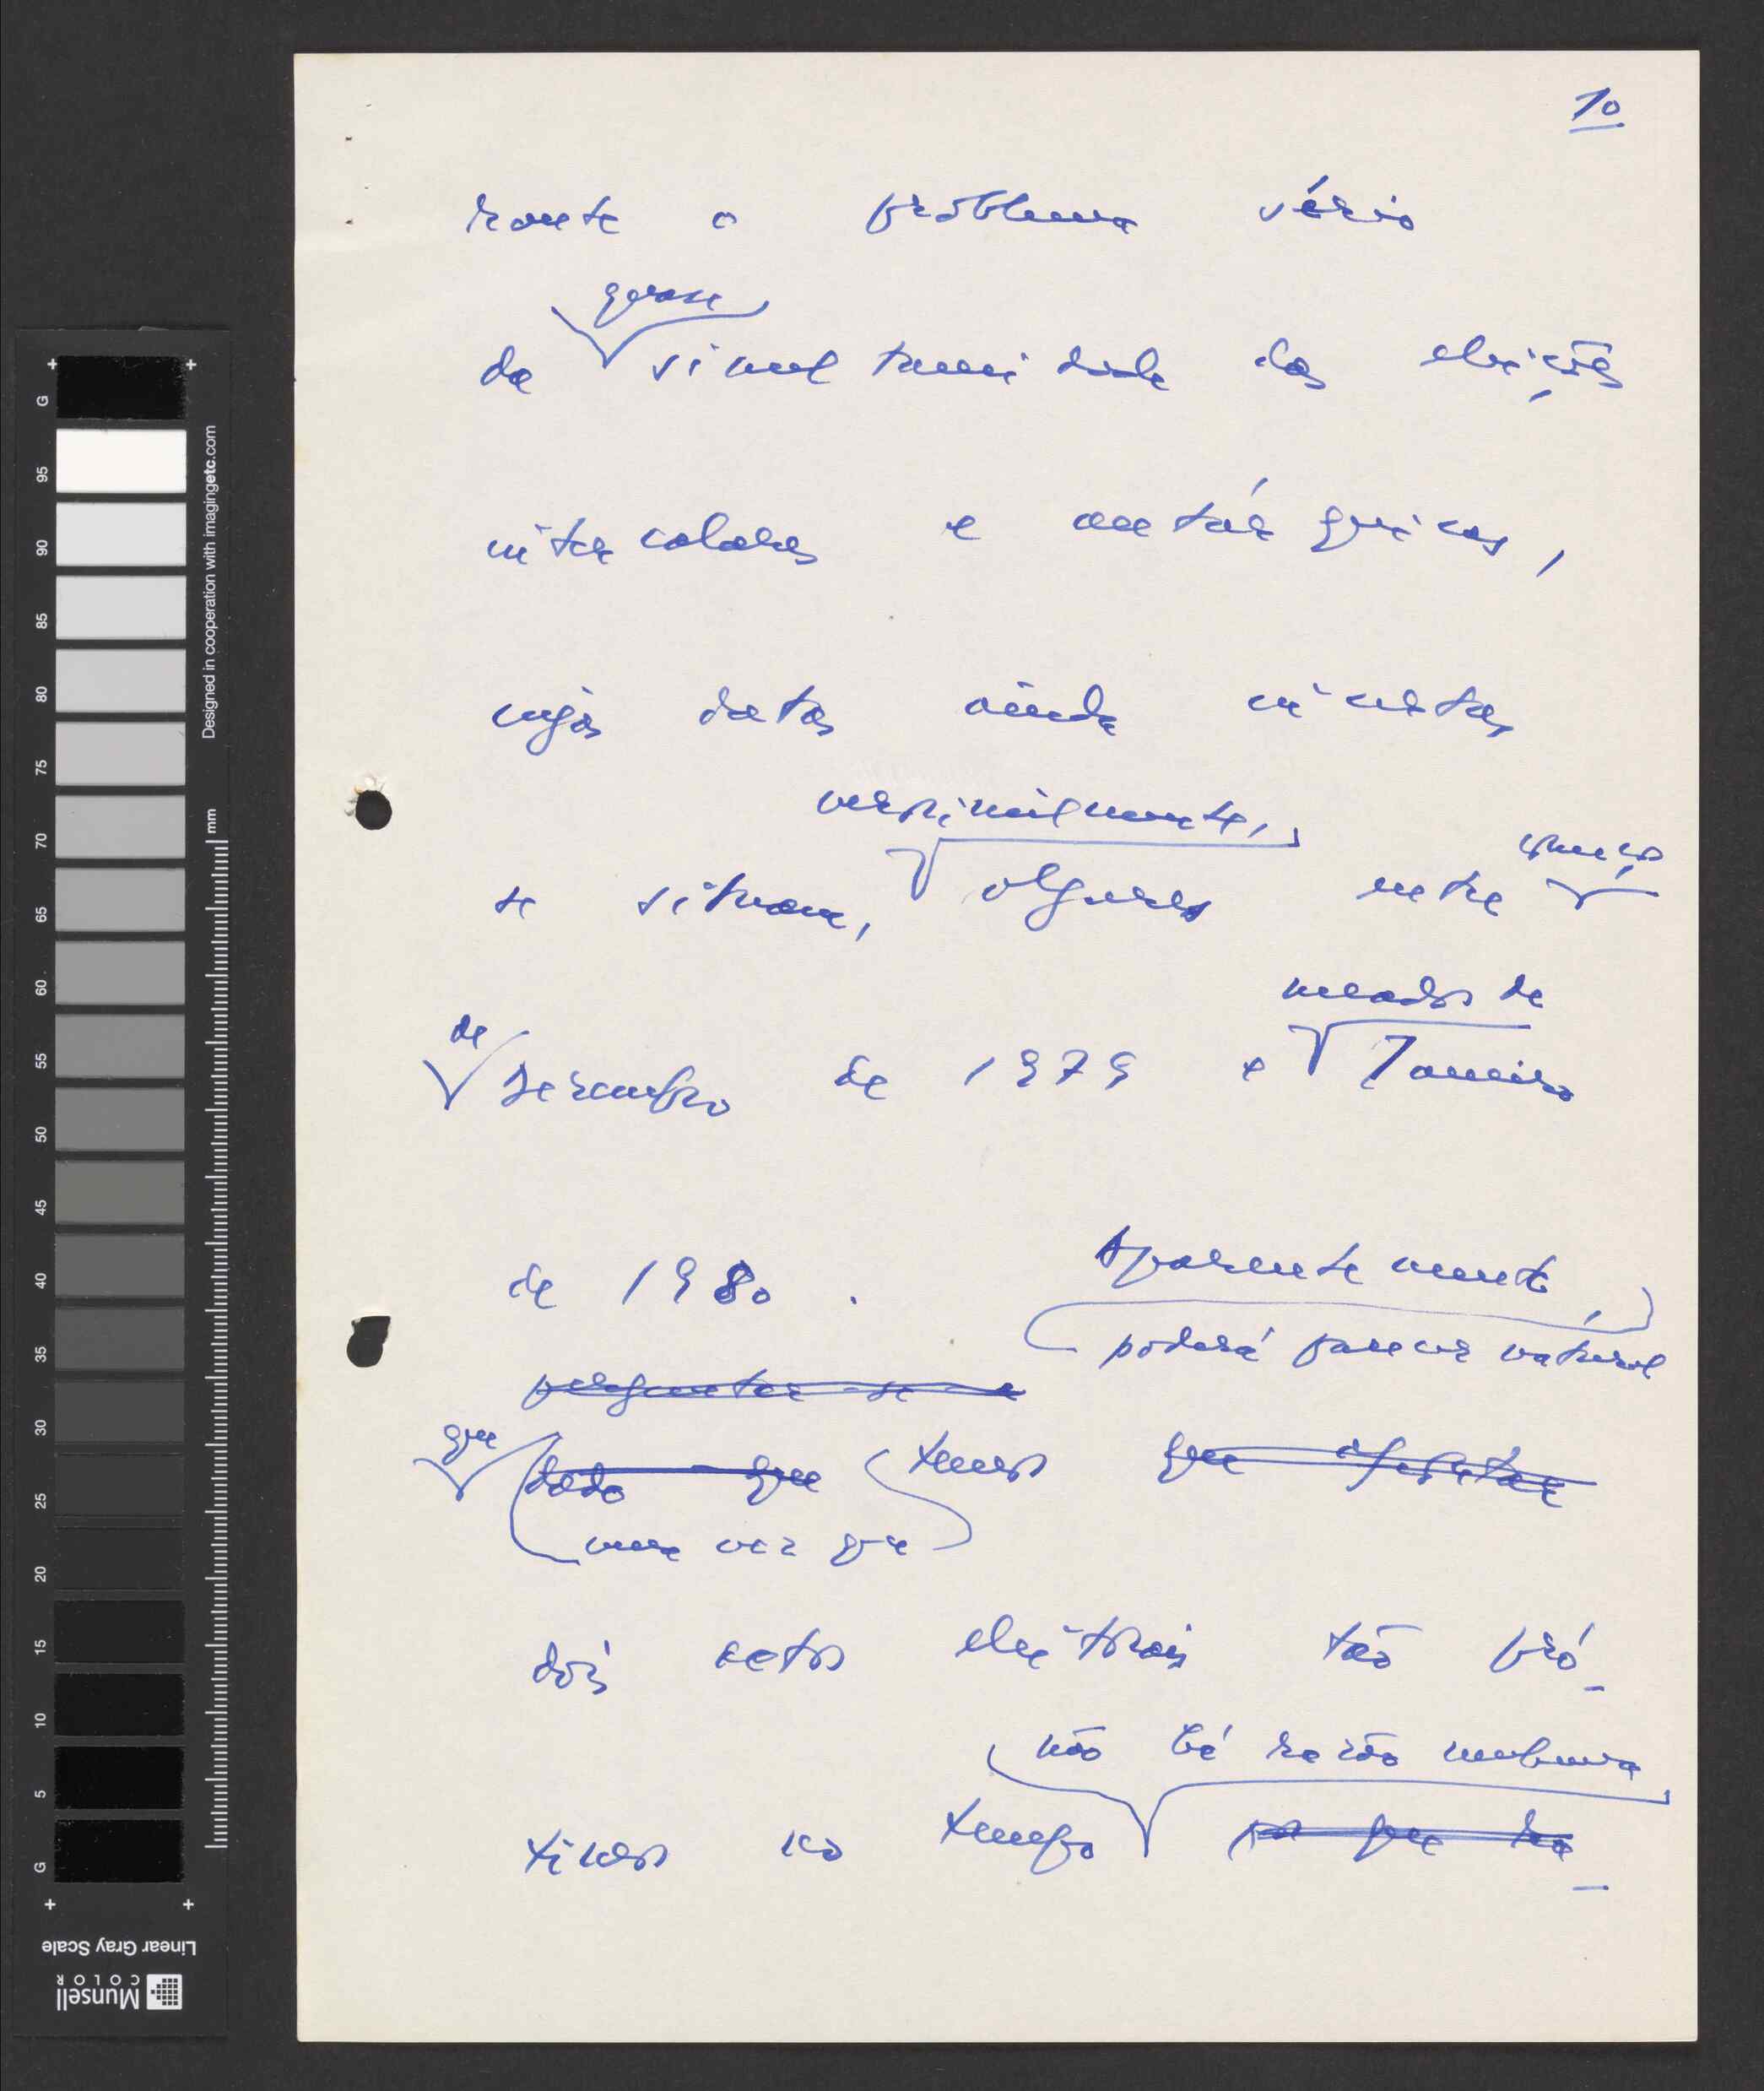 10
rante o problema sério
quase
da simultaneidade das eleições
intercalares e autárquicas,
cujas datas ainda incertas
verosimilmente,
se situam, algures entre
começo
meados de
de
Dezembro de 1979 e Janeiro
de 1980.
Aparentemente,
poderá parecer natural
perguntar-se a
que
dado que temos que
uma vez que
dois actos eleitorais tão pró-
não há razão nenhuma
ximos no tempo por que ra-
G 95 90 85 80 75 70 65 60 55 50 45 40 35 30 25 20 15 10 5 G
mm
Designed in cooperation with imagingetc.com
Linear Gray Scale
Munsell
COLOR